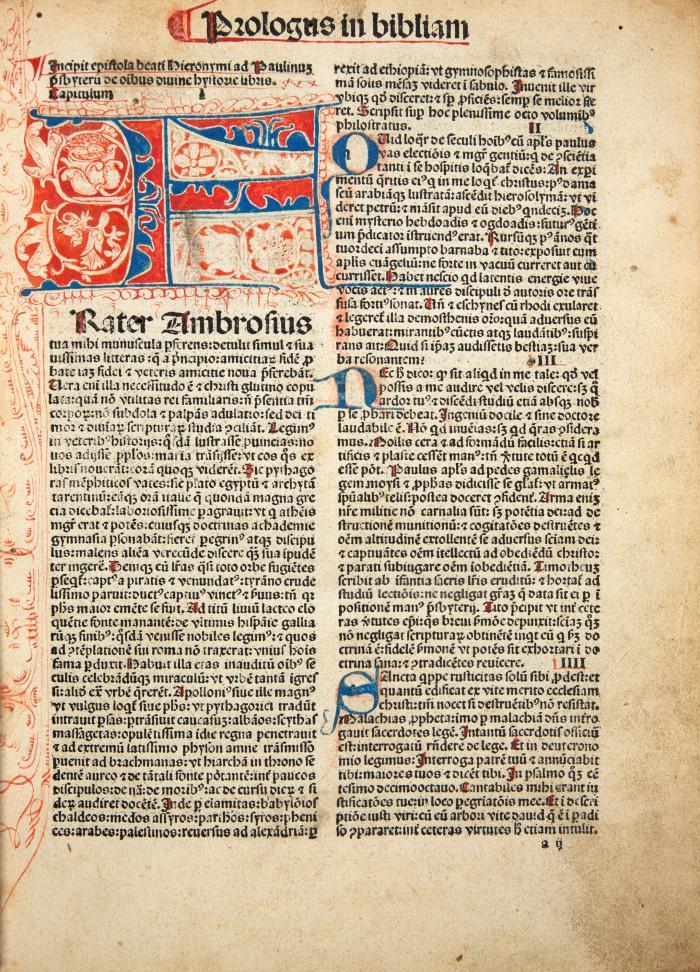 Prologus in bibliam
Incipit epistola beati Hieronymi ad Paulinuʒ
p̄sbyterū de oībus diuine hystorie libris.
Capitulum I
Frater Ambrosius
tua mihi munuscula ꝑferens: detulit simul ⁊ sua
uissimas litteras: q̄ a p̄ncipio: amicitiaꝝ fidē ꝓ
bate iaʒ fidei ⁊ veteris amicitie noua p̄ferebāt.
Uera eni illa necessitudo ē ⁊ christi glutino copu
lata: quā nō vtilitas rei familiaris: nō p̄sentia tm̄
corpoꝝ: nō subdola ⁊ palpās adulatio: sed dei ti
mor ⁊ diuinaꝝ scripturaꝝ studia ↄciliāt. Legim⁹
in veterib⁹ historijs: q̄sdā lustrasse ꝓuincias: no
uos adijsse ppl̓os: maria trāsisse: vt eos q̄s ex
libris nouerāt: corā quoqʒ viderēt. Sic pythago
ras mēphiticos vates: sic plato egyptū ⁊ archytā
tarentinū: eādqʒ orā italie q̄ quondā magna gre
cia dicebat̄: laboriosissime ꝑagrauit: vt q̄ atheīs
mgr̄ erat ⁊ potēs: cuiusqʒ doctrinas achademie
gymnasia ꝑsonabāt: fieret ꝑegrin⁹ atqʒ discipu
lus: malens aliēa verecūde discere qʒ̄ sua īpudē
ter ingerē. Deniqʒ cū lr̄as q̄si toto orbe fugiētes
ꝑseqt̄: capt⁹ a piratis ⁊ venundat⁹: tyrāno crude
lissimo paruit: duct⁹ captiu⁹ vinct⁹ ⁊ seru⁹: tn̄ qꝛ
phl̓s maior emēte se fuit. Ad titū liuiū lacteo elo
quētie fonte manantē: de vltimis hispāie gallia
rūqʒ finib⁹: q̄sdā venisse nobiles legim⁹: ⁊ quos
ad ↄtēplationē sui roma nō traxerat: vnius hoīs
fama ꝑduxit. Habuit illa etas inauditū oīb⁹ se
culis celebrādūqʒ miraculū: vt vrbē tantā īgres
si: aliō extra vrbē q̄rerēt. Apolloni⁹ siue ille mag⁹
vt vulgus loqt̄: siue phs̄: vt pythagorici tradūt
intrauit ꝑsas: ꝑtrāsiuit caucasuʒ: albāos: scythas
massagetas: opulētissima īdie regna penetrauit
⁊ ad extremū latissimo physon amne trāsmisso
puenit ad brachmanas: vt hiarchā in throno se
dentē aureo ⁊ de tātali fonte potātē: inf paucos
discipulos: de nā: de moribus: ac de cursu dieꝝ ⁊ si
deꝝ audiret docētē. Inde ꝑ elamitas: babylōios
chaldeos: medos assyros: parthos: syros: pheni
ces: arabes: palestinos: reuersus ad alexādriā: ꝑ
rexit ad ethiopiā: vt gymnosophistas ⁊ famosissi
mā solis mēsaʒ videret ī sabulo. Inuenit ille vir
vbiqʒ qd̄ disceret: ⁊ sꝑ ꝓficiēs: semꝑ se melior fie
ret. Scripsit suꝑ hoc plenissime octo volumib⁹
philostratus. II
Quid loqr̄ de seculi hoīb⁹ cū apl̓us paulus
vas electiōis ⁊ mgr̄ gentiū: q̄ de ↄsciētia
tanti ī se hospitis loq̄bat̄ dicēs: An expi
mentū q̄ritis ei⁹ q̄ in me loqt̄ christus: p⁹ dama
scū arabiāqʒ lustratā: ascēdit hierosolymā: vt vi
deret petrū: ⁊ māsit apud eū dieb⁹ q̄ndeciʒ. Hoc
eni mysterio hebdoadis ⁊ ogdoadis: futur⁹ gētī
um p̄dicator istruend⁹ erat. Rursūqʒ p⁹ ānos q̄t
tuordeci assumpto barnaba ⁊ tito: exposuit cum
apl̓is euāgeliū: ne forte in vacuū curreret aut cu
currisset. Habet nescio qd̄ latentis energie viue
vocis act⁹: ⁊ in aures discipuli d̓ autoris ore trās
fusa forti⁹ sonat. Un̄ ⁊ eschynes cū rhodi exularet
⁊ legeret illa demosthenis oro: quā aduersus eū
habuerat: mirantib⁹ cūctis atqʒ laudātib⁹: suspi
rans ait: Quid si ip̄aʒ audissetis bestiaʒ: sua ver
ba resonantem? III
Nec h̄ dico: qꝛ sit aliqd̄ in me tale: qd̄ vel
possis a me audire vel velis discere: sʒ q̄
ardor tu⁹ ⁊ discēdi studiū etiā absqʒ nob̓
ꝑ se ꝓbari debeat. Ingeniū docile ⁊ sine doctore
laudabile ē. Nō qd̄ inueias: sʒ qd̄ q̄ras ↄsidera
mus. Mollis cera ⁊ ad formādū facilis: etiā si ar
tificis ⁊ plaste cessēt man⁹: tn̄ v̄tute totū ē qcqd
esse pōt. Paulus apl̓s ad pedes gamalielis le
gem moysi ⁊ ꝓphetas didicisse se glat̄: vt armat⁹
spūalib⁹ telis: postea doceret ↄfidēt̄. Arma eniʒ
nr̄e militie nō carnalia sūt: sʒ potētia deī: ad de
structionē munitionū: ⁊ cogitatōes destruētes ⁊
oēm altitudinē extollentē se aduersus sciam dei:
⁊ captiuātes oēm itellectū ad obediēdū christo:
⁊ parati subiugare oem iobediētiā. Timotheuʒ
scribit ab ifantia sacris lr̄is eruditū: ⁊ hortat̄ ad
studiū lectiōis: ne negligat gr̄aʒ q̄ data sit ei ꝑ ī
positionē man⁹ p̄sbyterij. Tito p̄cipit vt int̄ cete
ras v̄tutes epi: q̄s breui sermōe depinxit: sciaʒ qʒ̄
nō negligat scripturaꝝ obtinētē inqt eū q̄ sʒ do
ctrinā ē: fidelē s̄monē vt potēs sit exhortari ī do
ctrina sana: ⁊ ↄtradicētes reuicere. IIII
Sancta qp̄pe rusticitas solū sibi ꝓdest: et
quantū edificat ex vite merito ecclesiam
christi: tm̄ nocet si destruētib⁹ nō resistat.
Malachias ꝓpheta: imo ꝑ malachiā dn̄s intro
gauit sacerdotes legē. Intantū sacerdotis officiū
est: interrogatū rn̄dere de lege. Et in deuterono
mio legimus: Interroga patrē tuū ⁊ annūciabit
tibi: maiores tuos ⁊ dicēt tibi. In psalmo qʒ cē
tesimo decimooctauo. Cantabiles mihi erant iu
stificatōes tue: in loco ꝑegriatōis mee. Et i descri
ptiōe iusti viri: cū eū arbori vite dauid q̄ ē ī padi
so ↄpararet: int̄ ceteras virtutes h̄ etiam intulit.
a ij